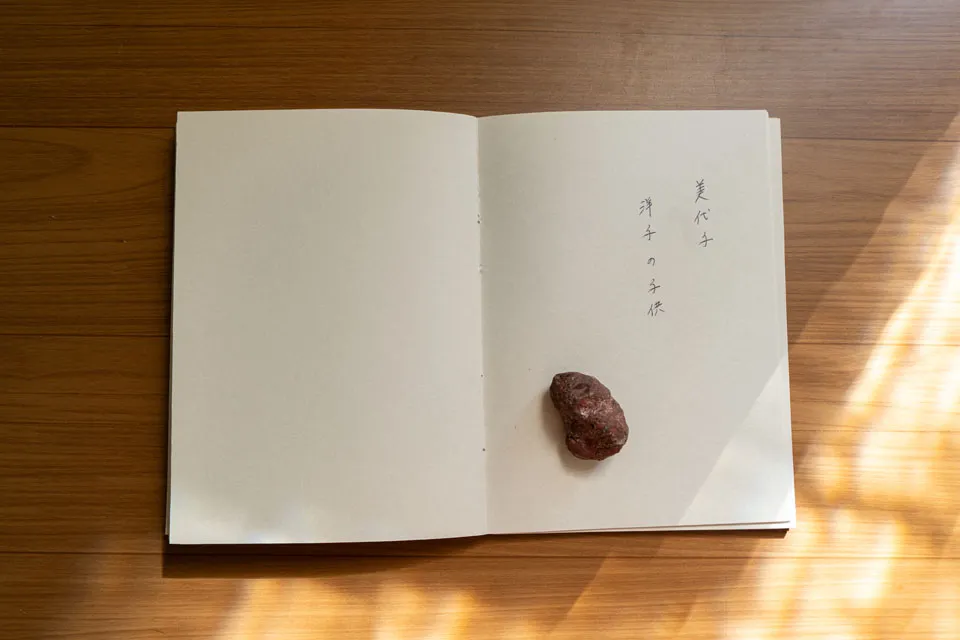 美代子
洋子の子供